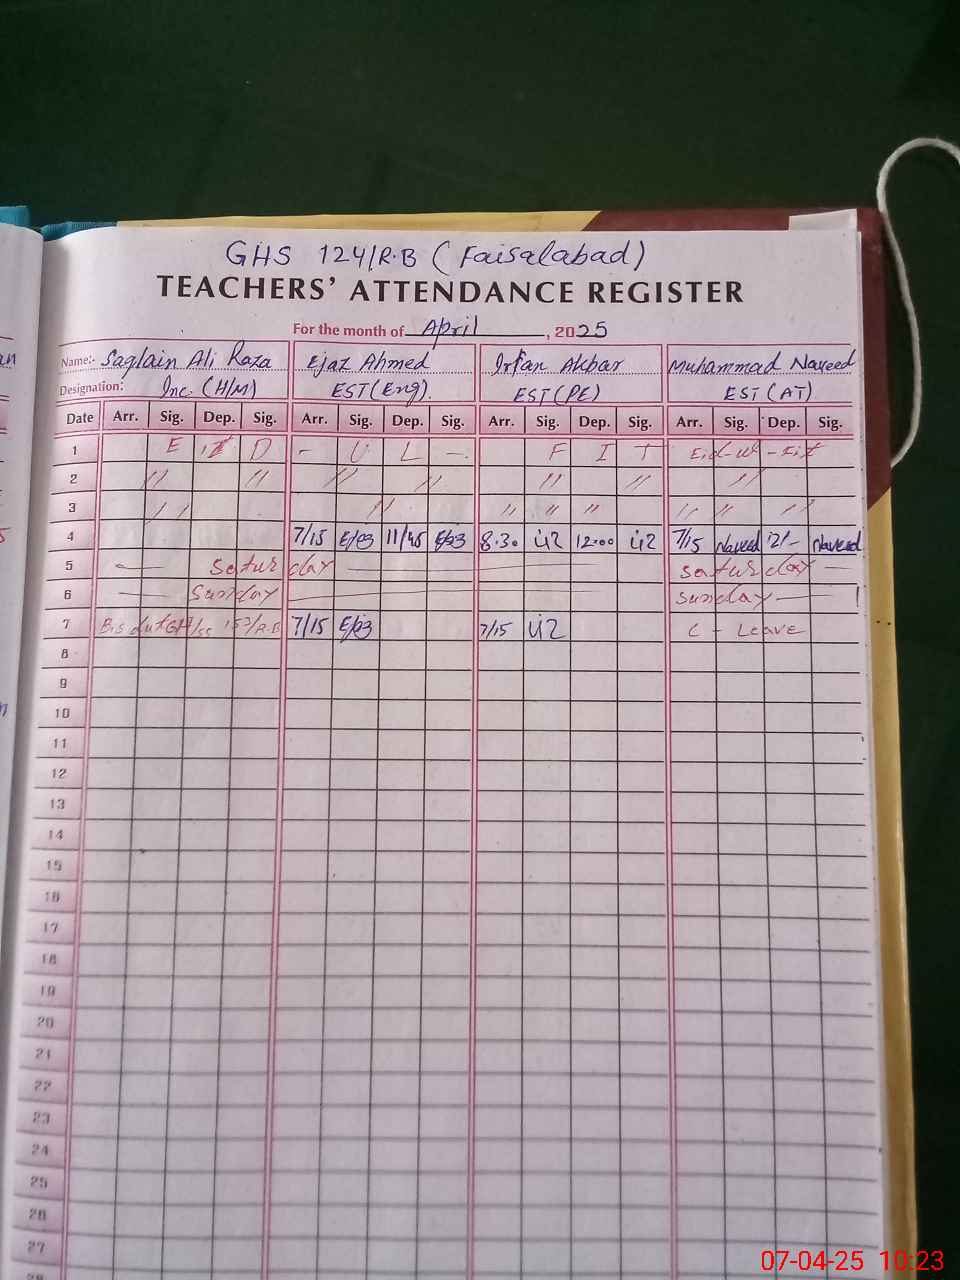 GHS 124/R.B (Faisalabad)
TEACHERS' ATTENDANCE REGISTER
For the month of April, 2025
Name:- Saqlain Ali Raza Ejaz Ahmed Irfan Akbar Muhammad Naveed
Designation: Inc. (H/M) EST (Eng). EST (PE) EST (AT)
Date Arr. Sig. Dep. Sig. Arr. Sig. Dep. Sig. Arr. Sig. Dep. Sig. Arr. Sig. Dep. Sig.
1 E I D - U L - F I T Eid-ul-Fit
2 // // // // // // //
3 // // // // // // // //
4 7/15 11/45 8:30 12:00 7/15 Naveed 12/- Naveed
5 — Saturday — Saturday —
6 — Sunday — Sunday —
7 153/R.B 7/15 7/15 C - Leave
8
9
10
11
12
13
14
15
16
17
18
19
20
21
22
23
24
25
26
27
28
07-04-25 10:23